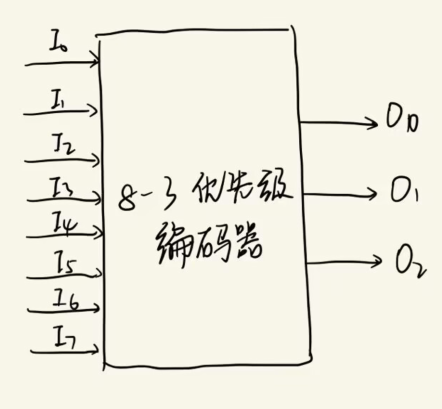 I₀
I₁
I₂
I₃
I₄
I₅
I₆
I₇
8-3 优先级
编码器
O₀
O₁
O₂